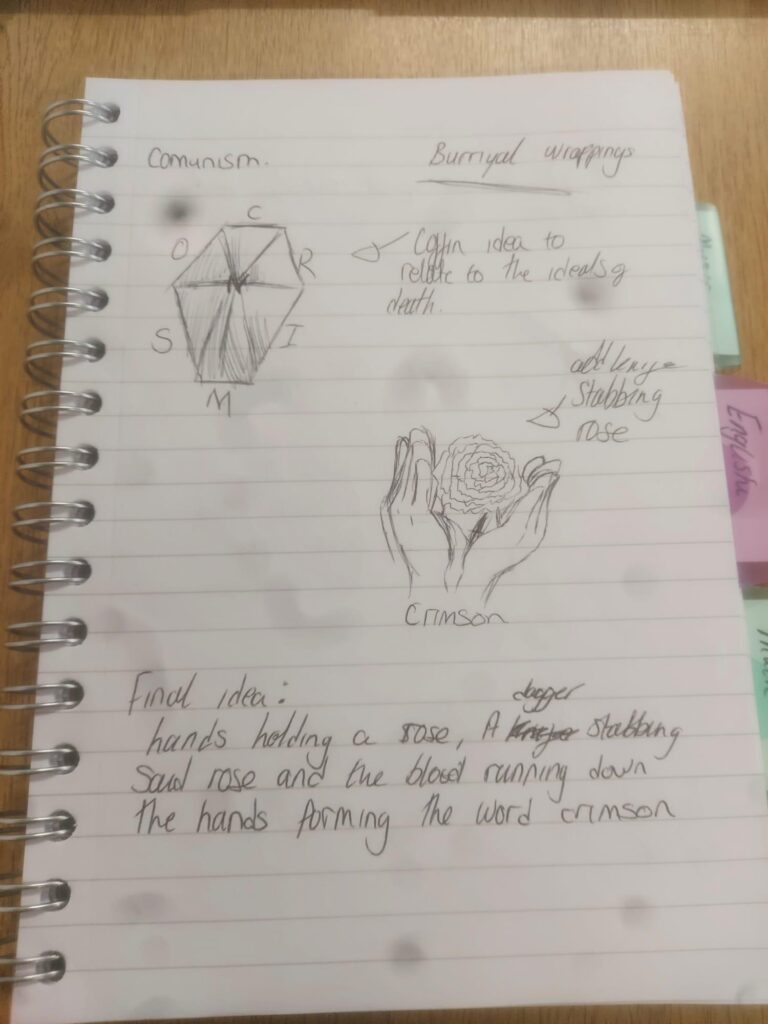 Comunism.
Burriyal wrappings
C
O R
N
S I
M
Coffin idea to
relate to the ideals of
death.
add knife
Stabbing
rose
Crimson
Final idea:
dagger
hands holding a rose, A stabbing
Said rose and the blood running down
the hands forming the word crimson